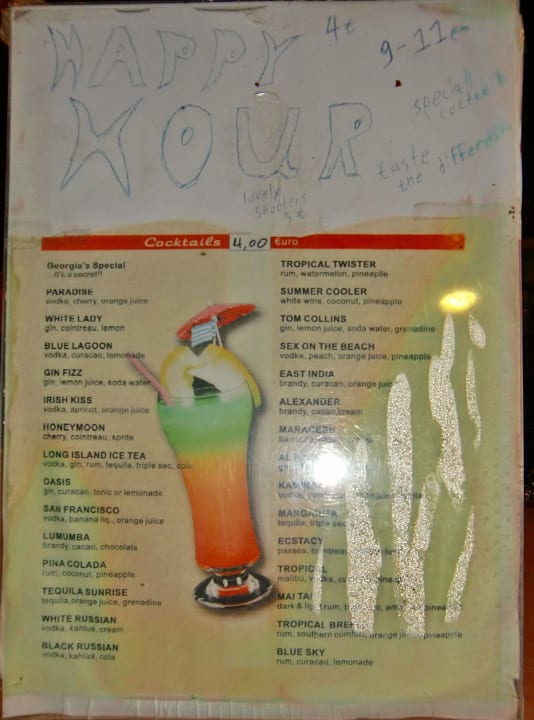 HAPPY 4€ 9-11
HOUR
taste
the
lovely
shooters
3 €
Cocktails 4,00 €uro
Georgia's Special
...it's a secret!!
PARADISE
vodka, cherry, orange juice
WHITE LADY
gin, cointreau, lemon
BLUE LAGOON
vodka, curacao, lemonade
GIN FIZZ
gin, lemon juice, soda water
IRISH KISS
vodka, apricot, orange juice
HONEYMOON
cherry, cointreau, sprite
LONG ISLAND ICE TEA
vodka, gin, rum, tequila, triple sec, cola
OASIS
gin, curacao, tonic or lemonade
SAN FRANCISCO
vodka, banana liq., orange juice
LUMUMBA
brandy, cacao, chocolate
PINA COLADA
rum, coconut, pineapple
TEQUILA SUNRISE
tequila,orange juice, grenadine
WHITE RUSSIAN
vodka, kahlua, cream
BLACK RUSSIAN
vodka, kahlua, cola
TROPICAL TWISTER
rum, watermelon, pineaplle
SUMMER COOLER
white wine, coconut, pineapple
TOM COLLINS
gin, lemon juice, soda water, grenadine
SEX ON THE BEACH
vodka, peach, orange juice, pineapple
EAST INDIA
brandy, curacao, orange juice
ALEXANDER
brandy, cacao,cream
MARGARITA
tequila, triple sec
ECSTACY
passoa,
TROPICAL
malibu, vodka,
MAI TAI
dark & rum,
TROPICAL
rum, southern comfort, orange pineapple
BLUE SKY
rum, curacao, lemonade